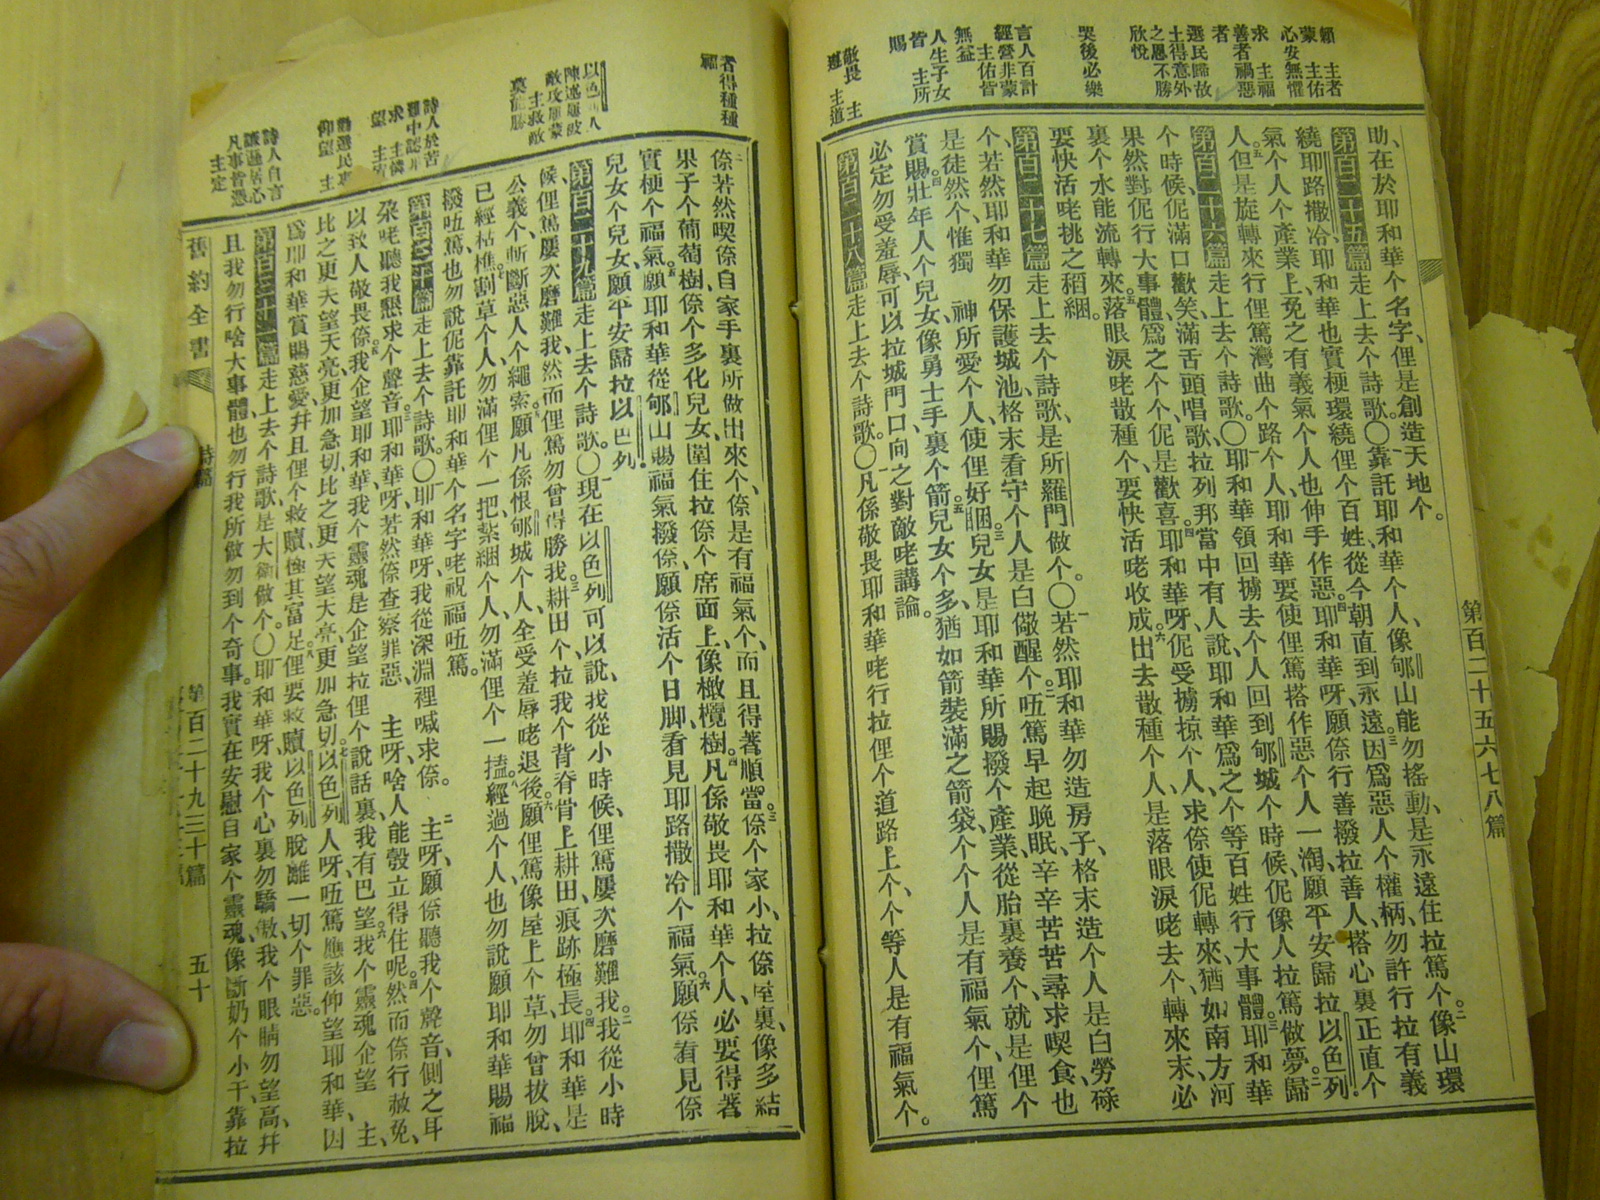 賴 主者
蒙 主佑
心安無懼
求 主福
善者禍惡
者
選民歸故
土得意外
之恩不勝
欣悅
哭後必樂
言人百計
經營非蒙
主佑皆
無益
人生子女
皆 主所
賜
敬畏 主
遵 主道
第百二十五六七八篇
助、在於耶和華个名字、俚是創造天地个。
第百二十五篇走上去个詩歌。〇靠託耶和華个人、像郇山能勿搖動、是永遠住拉篤个。二像山環
繞耶路撒冷、耶和華也實梗環繞俚个百姓、從今朝直到永遠。三因爲惡人个權柄、勿許行拉有義
氣个人个產業上、免之有義氣个人也伸手作惡。四耶和華呀、願倷行善撥拉善人、搭心裏正直个
人。五但是旋轉來行俚篤灣曲个路个人、耶和華要使俚篤搭作惡个人一淘、願平安歸拉以色列。
第百二十六篇走上去个詩歌。〇一耶和華領回擄去个人回到郇城个時候、伲像人拉篤做夢。二歸
个時候、伲滿口歡笑、滿舌頭唱歌、拉列邦當中有人說、耶和華爲之个等百姓行大事體。三耶和華
果然對伲行大事體、爲之个个、伲是歡喜。四耶和華呀、伲受擄掠个人、求倷使伲轉來、猶如南方河
裏个水能流轉來。五落眼淚咾散種个、要快活咾收成。六出去散種个人、是落眼淚咾去个、轉來末必
要快活咾挑之稻綑。
第百二十七篇走上去个詩歌、是所羅門做个。〇一若然耶和華勿造房子、格末造个人是白勞碌
个、若然耶和華勿保護城池、格末看守个人是白儆醒个。二㑚篤早起晚眠、辛辛苦苦尋求喫食、也
是徒然个、惟獨 神所愛个人、使俚好睏。三兒女是耶和華所賜撥个產業、從胎裏養个、就是俚个
賞賜。四壯年人个兒女、像勇士手裏个箭。五兒女个多、猶如箭裝滿之箭袋、个个人是有福氣个、俚篤
必定勿受羞辱、可以拉城門口、向之對敵咾講論。
第百二十八篇走上去个詩歌。〇一凡係敬畏耶和華咾行拉俚个道路上个、个等人是有福氣个。
者得種種
福
以色列人
陳述屢被
敵攻屢蒙
主救敵
莫能勝
詩人於苦
難中認罪
求 主憐
望 主
仰望 主
詩人自言
謙遜居心
凡事皆憑
主定
二倷若然喫倷自家手裏所做出來个、倷是有福氣个、而且得著順當。三倷个家小、拉倷屋裏、像多結
果子个葡萄樹、倷个多化兒女、圍住拉倷个席面上、像橄欖樹。四凡係敬畏耶和華个人、必要得著
實梗个福氣。五願耶和華從郇山賜福氣撥倷、願倷活个日脚、看見耶路撒冷个福氣。六願倷看見倷
兒女个兒女、願平安歸拉以色列。
第百二十九篇走上去个詩歌。〇一現在以色列可以說、我從小時候、俚篤屢次磨難我。二我從小時
候、俚篤屢次磨難我、然而俚篤勿曾得勝我。三耕田个拉我个背脊骨上耕田、痕跡極長。四耶和華是
公義个、斬斷惡人个繩索。五願凡係恨郇城个人、全受羞辱咾退後。六願俚篤像屋上个草、勿曾拔脫、
已經枯樵。七割草个人、勿滿俚个一把、紮綑个人、勿滿俚个一搕。八經過个人、也勿說願耶和華賜福
撥㑚篤、也勿說伲靠託耶和華个名字咾祝福㑚篤。
第百三十篇走上去个詩歌。〇一耶和華呀、我從深淵裡喊求倷。 二主呀、願倷聽我个聲音、側之耳
朶咾聽我懇求个聲音。三耶和華呀、若然倷查察罪惡、 主呀、啥人能彀立得住呢。四然而倷行赦免、
以致人敬畏倷。五我企望耶和華、我个靈魂是企望、拉俚个說話裏我有巴望。六我个靈魂企望 主、
比之更夫望天亮、更加急切、比之更夫望天亮、更加急切。七以色列人呀、㑚篤應該仰望耶和華、因
爲耶和華賞賜慈愛、幷且俚个救贖極其富足。八俚要救贖以色列脫離一切个罪惡。
第百三十一篇走上去个詩歌、是大衛做个。〇一耶和華呀、我个心裏勿驕傲、我个眼睛勿望高、幷
且我勿行啥大事體、也勿行我所做勿到个奇事。二我實在安慰自家个靈魂、像斷奶个小干、靠拉
舊約全書
詩篇
第百二十九三十篇
五十